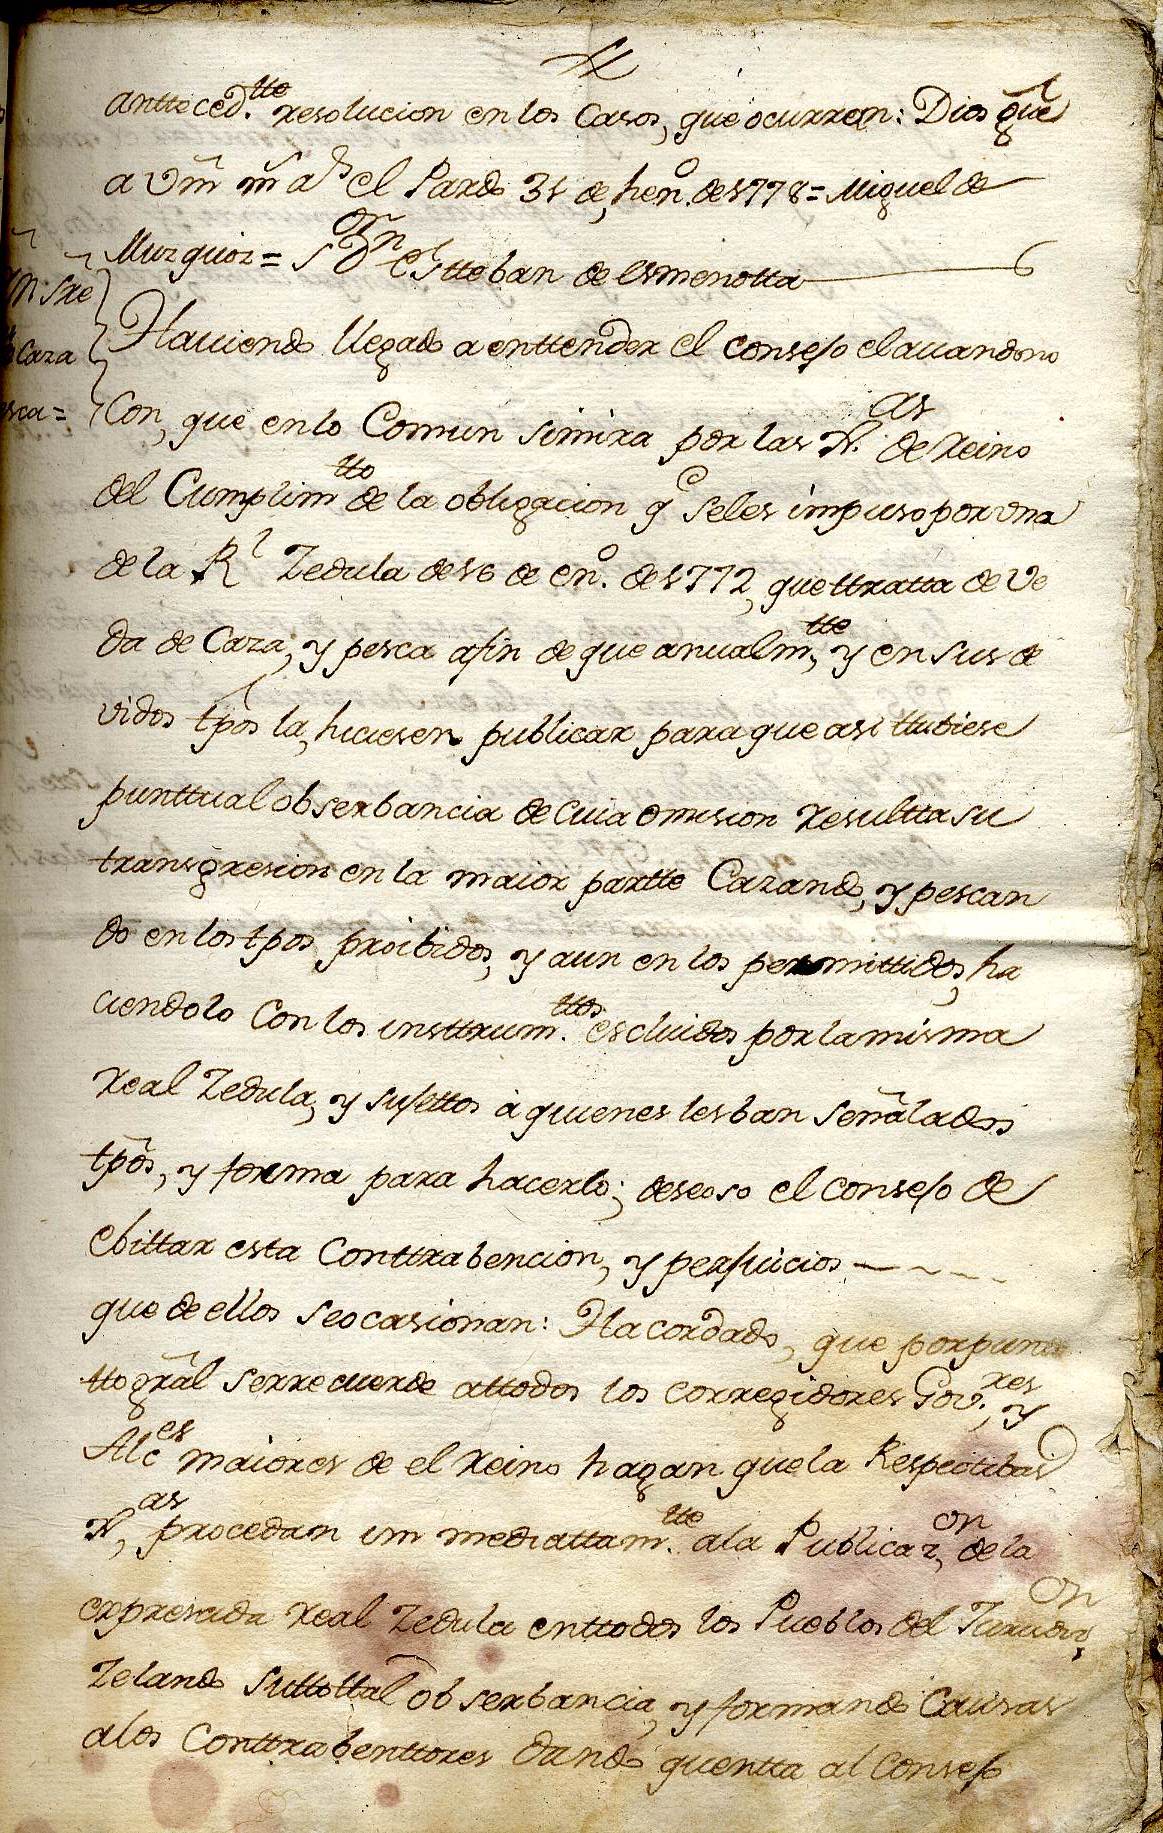 anttecedtte. resolucion en los Casos, que ocurren: Dios gue
a Vm ms as el Pardo 31 de heno. de 1778 = Miguel de
Muzquiz = Sor Dn Estteban de Esmenotta
n. sre
Caza
esca =
Haviendo llegado a enttender el consejo el avandono
Con, que en lo Comun simira por las Xas. de Reino
del Cumplimtto de la obligacion qe seles impuso por una
de la Rl Zedula de 16 de eno. de 1772, que ttratta de Ve
da de Caza, y pesca afin de que anualmtte, y en sus de
vidos tpos la hiciesen publicar para que asi ttubiese
punttual obserbancia de cuia omision resultta su
transgresion en la maior partte Cazando, y pescan
do en los tpos proibidos, y aun en los permittidos, ha
ciendolo Con los insttrumttos. escluidos por la misma
Real Zedula, y sujettos à quienes les ban señalados
tpos, y forma para hacerlo; deseoso el consejo de
ebittar esta Conttrabencion, y perjuicios
que de ellos se ocasionan: Ha cordado, que por pun
tto gral serrecuerde attodos los corregidores Govres., y
Alces maiores de el Reino hagan que la Respectibas
Xas, procedan immediattamtte. ala Publicazon, de la
expresada Real Zedula enttodos los Pueblos del
Zelando suttottal obserbancia, y formando Causas
alos Conttrabenttores dando quentta al Consejo